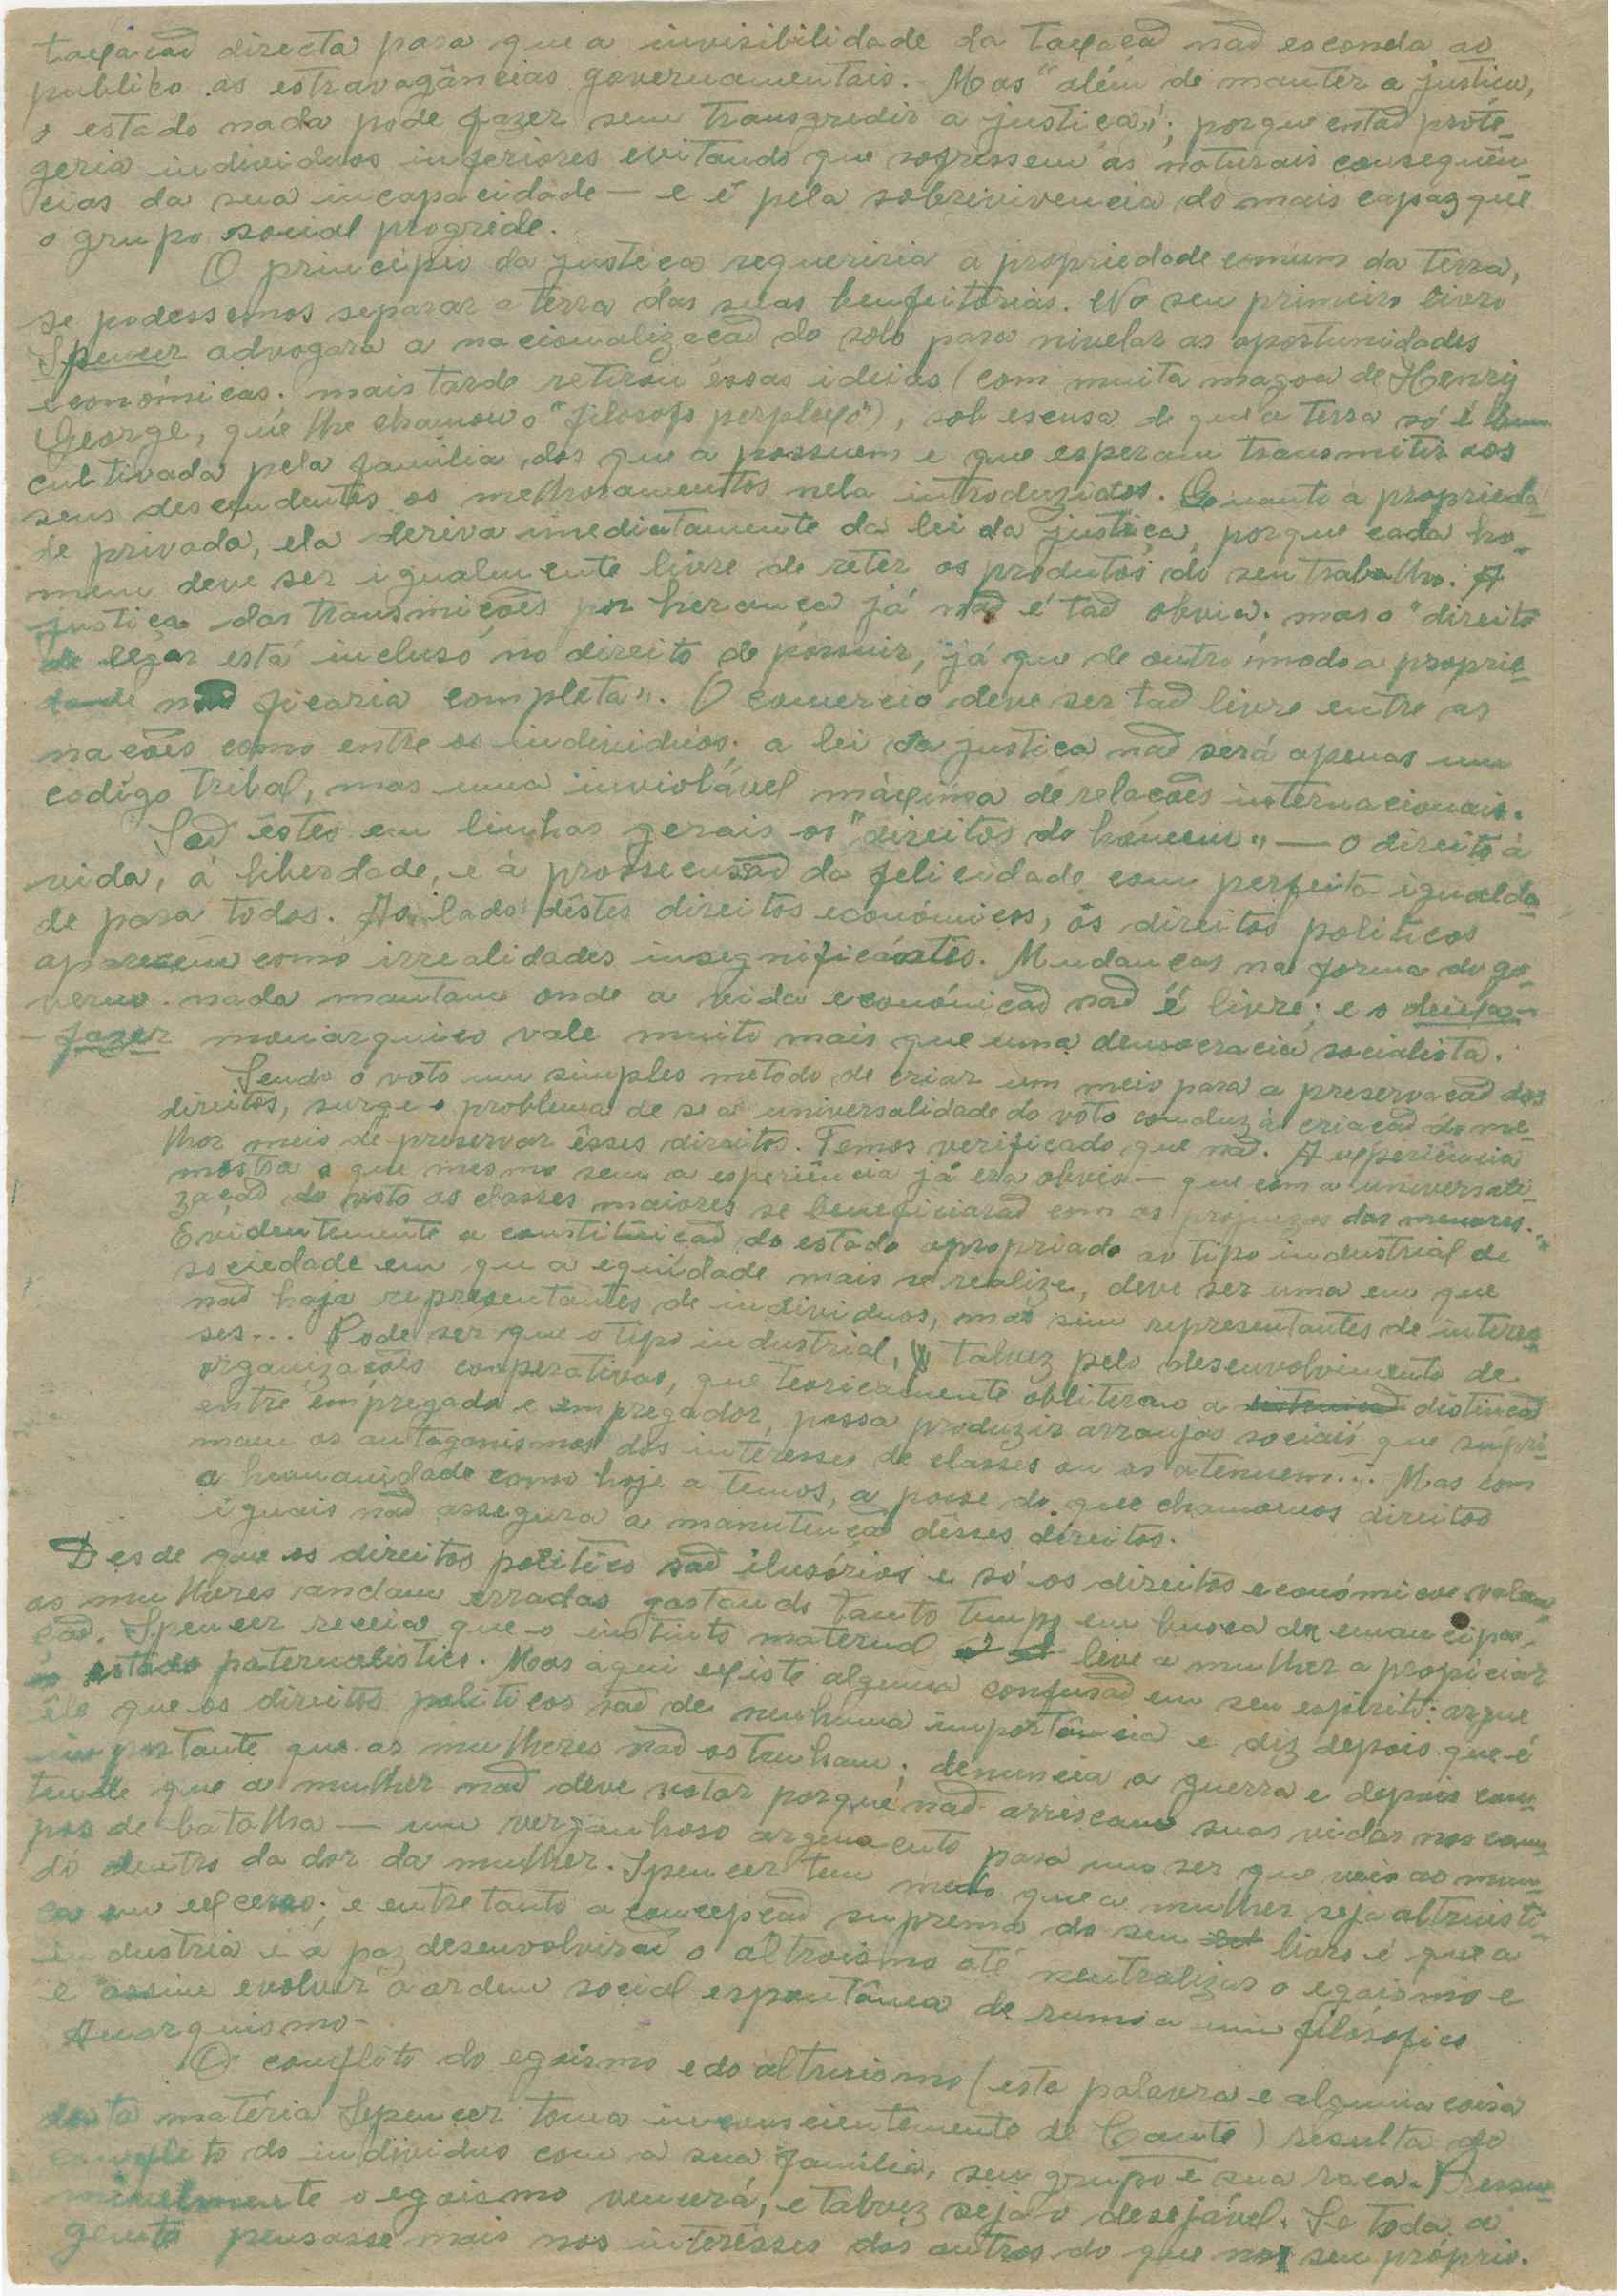 taxação directa para que a invisibilidade da taxação não esconda ao
publico as estravagâncias governamentais. Mas "além de manter a justiça,
o estado nada pode fazer sem transgredir a justiça"; porque então prote-
geria individuos inferiores evitando que sofressem as naturais consequên-
cias da sua incapacidade — e é pela sobrevivencia do mais capaz que
o grupo social progride.
O principio da justiça requeriria a propriedade comum da terra,
se podessemos separar a terra das suas benfeitorias. No seu primeiro livro
Spencer advogara a nacionalização do solo para nivelar as oportunidades
económicas; mais tarde retirou essas ideias (com muita magoa de Henry
George, que lhe chamou o "filosofo perplexo"), sob escusa de que a terra só é bem
cultivada pela familia dos que a possuem e que esperam transmitir aos
seus descendentes os melhoramentos nela introduzidos. Quanto à proprieda-
de privada, ela deriva imediatamente da lei da justiça, porque cada ho-
mem deve ser igualmente livre de reter os produtos do seu trabalho. A
justiça das transmições por herança já não é tão obvia; mas o "direito
de legar está incluso no direito de possuir, já que de outro modo a proprie-
dade não ficaria completa". O comercio deve ser tão livre entre as
nações como entre os individuos; a lei da justiça não será apenas um
codigo tribal, mas uma inviolável máxima de relações internacionais.
São êstes em linhas gerais os "direitos do homem" — o direito à
vida, à liberdade, e à prossecusão da felicidade com perfeita igualda-
de para todos. Ao lado dêstes direitos económicos, os direitos politicos
aparecem como irrealidades insegnificantes. Mudanças na forma do go-
verno nada montam onde a vida económica não é livre; e o deixa-
-fazer monarquico vale muito mais que uma democracia socialista.
Sendo o voto um simples metodo de criar um meio para a preservação dos
direitos, surge o problema de se a universalidade do voto conduz à criação do me-
lhor meio de preservar êsses direitos. Temos verificado que não. A experiência
mostra o que mesmo sem a esperiência já era obvio — que com a universali-
zação do voto as classes maiores se beneficiarão com os prejuizos das menores.
Evidentemente a constituição do estado apropriado ao tipo industrial de
sociedade em que a equidade mais se realize, deve ser uma em que
não haja representantes de individuos, mas sim representantes de interes-
ses... Pode ser que o tipo industrial, talvez pelo desenvolvimento de
organizações cooperativas, que teoricamente obliteram a distinção
entre empregado e empregador, possa produzir arranjos sociais que supri-
mam os antagonismos dos interesses de classes ou os atenuem... Mas com
a humanidade como hoje a temos, a posse do que chamamos direitos
iguais não assegura a manutenção dêsses direitos.
Desde que os direitos politicos são ilusórios e só os direitos económicos valem
as mulheres andam erradas gastando tanto tempo em busca da emancipa-
ção. Spencer receia que o instinto maternal leve a mulher a propiciar
o estado paternalistico. Mas aqui existe alguma confusão em seu espirito: argue
êle que os direitos politicos são de nenhuma importância e diz depois que é
importante que as mulheres não os tenham; denuncia a guerra e depois con-
tende que a mulher não deve votar porque não arriscam suas vidas nos cam-
pos de batalha — um vergonhoso argumento para um ser que veio ao mun-
do dentro da dor da mulher. Spencer tem medo que a mulher seja altruisti-
ca em excesso; e entretanto a concepção suprema do seu livro é que a
industria e a paz desenvolvirão o altroismo até neutralizar o egoismo e
e assim evolver a ordem social espontânea de rumo a um filosofico
Anarquismo.
O conflito do egoismo e do altruismo (esta palavra e alguma coisa
desta matéria Spencer toma inconscientemente de Comte) resulta do
conflito do individuo com a sua familia, seu grupo e sua raça. Presu-
mivelmente o egoismo vencerá, e talvez seja o desejável. Se toda a
gente pensasse mais nos interêsses dos outros do que nos seu próprio.